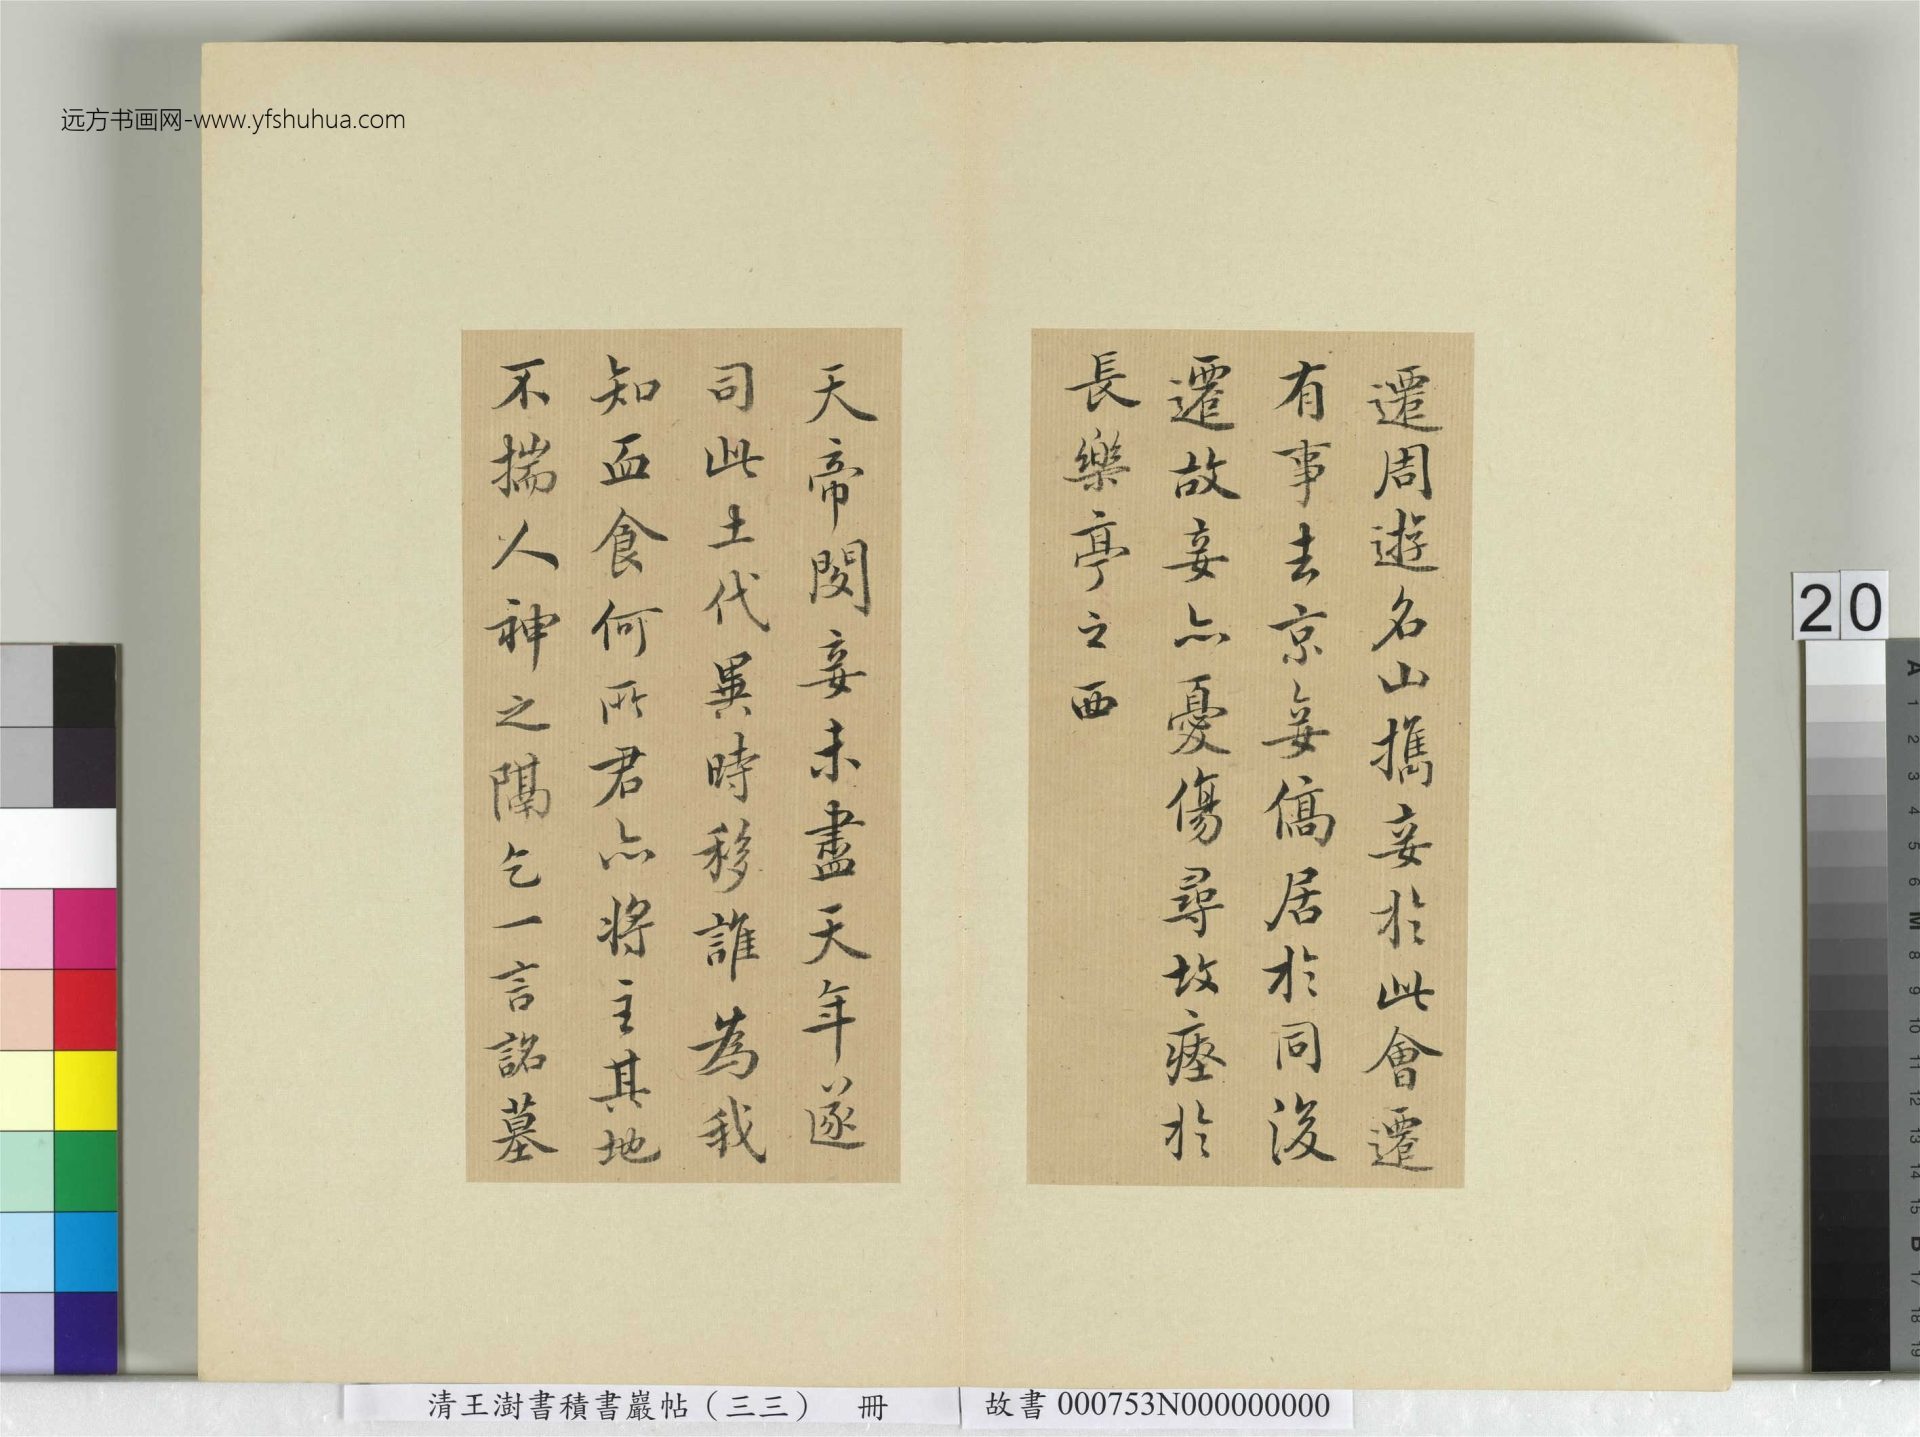 远方书画网-www.yfshuhua.com
遷周遊名山攜妾於此會遷
有事去京妾僑居於同後
遷故妾亦憂傷尋故瘞於
長樂亭之西
天帝閔妾未盡天年遂
司此土代異時移誰為我
知血食何所君亦將主其地
不揣人神之隔乞一言諮墓
20
A 1 2 3 4 5 6 M 8 9 10 11 12 13 14 15 B 17 18 19
清王澍書積書巖帖（三三） 冊
故書 000753N000000000